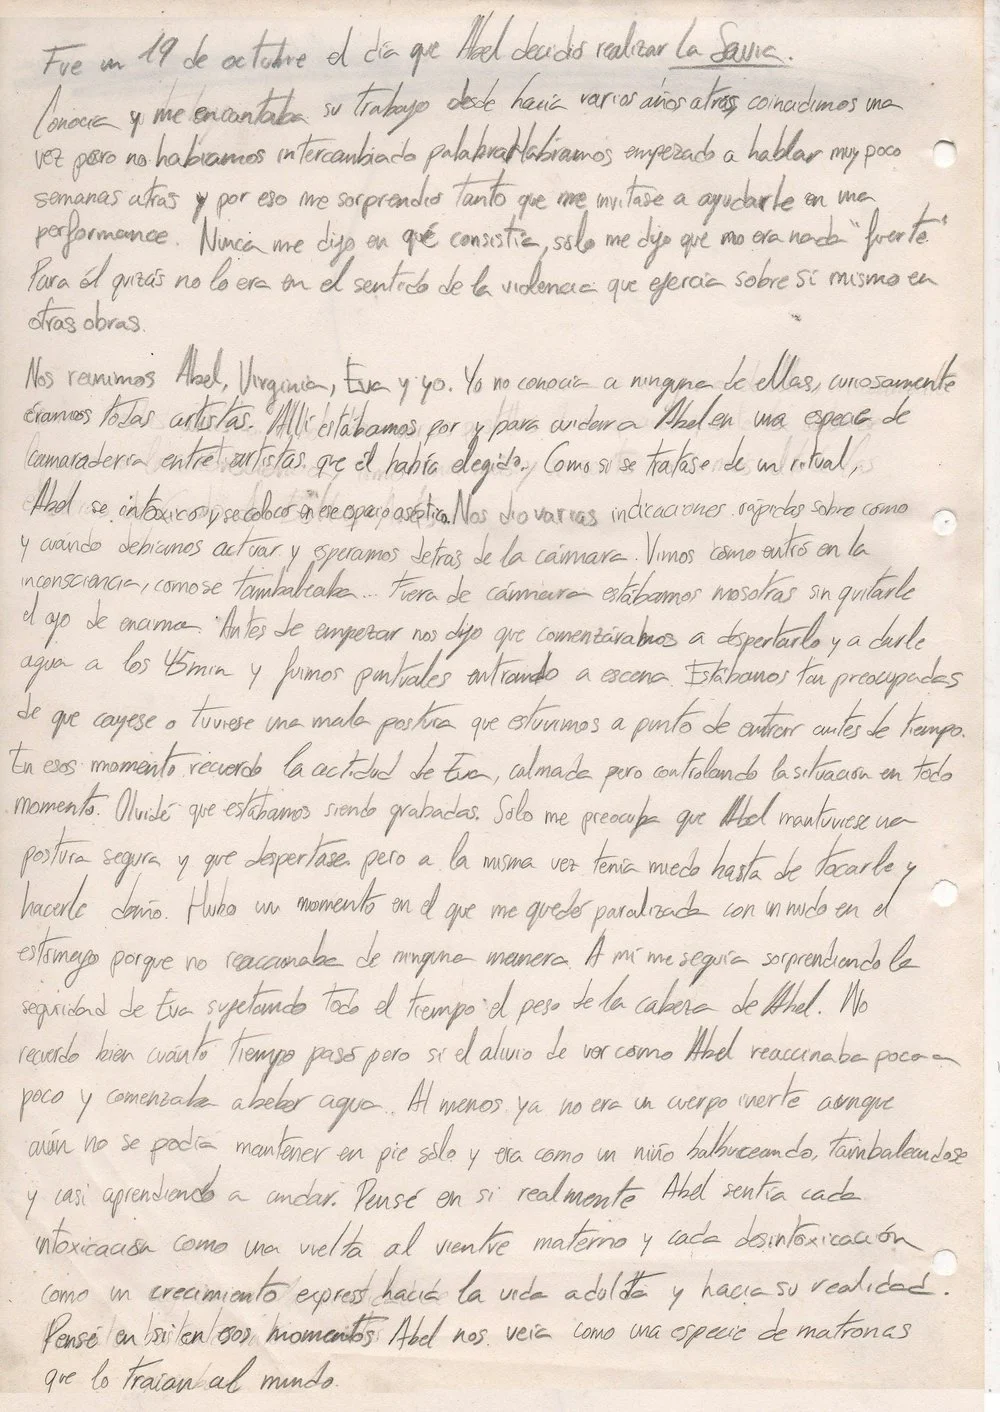 Fue un 19 de octubre el día que Abel decidió realizar la Savia.
Conocía y me encantaba su trabajo desde hacía varios años atrás, coincidimos una
vez pero no habíamos intercambiado palabra. Habíamos empezado a hablar muy poco
semanas atrás y por eso me sorprendió tanto que me invitase a ayudarle en una
performance. Nunca me dijo en qué consistía, sólo me dijo que no era nada "fuerte".
Para él quizás no lo era en el sentido de la violencia que ejercía sobre sí mismo en
otras obras.
Nos reunimos Abel, Virginia, Eva y yo. Yo no conocía a ninguna de ellas, curiosamente
éramos todas artistas. Allí estábamos por y para cuidar a Abel en una especie de
camaradería entre artistas que él había elegido. Como si se tratase de un ritual,
Abel se intoxicó y se colocó en ese espacio aséptico. Nos dio varias indicaciones rápidas sobre como
y cuando debíamos actuar y esperamos detrás de la cámara. Vimos como entró en la
inconsciencia, como se tambaleaba... Fuera de cámara estábamos nosotras sin quitarle
el ojo de encima. Antes de empezar nos dijo que comenzáramos a despertarlo y a darle
agua a los 45min y fuimos puntuales entrando a escena. Estábamos tan preocupadas
de que cayese o tuviese una mala postura que estuvimos a punto de entrar antes de tiempo.
En esos momento recuerdo la actidud de Eva, calmada pero controlando la situación en todo
momento. Olvidé que estábamos siendo grabadas. Solo me preocupa que Abel mantuviese una
postura segura y que despertase pero a la misma vez tenía miedo hasta de tocarle y
hacerle daño. Hubo un momento en el que me quedé paralizada con un nudo en el
estómago porque no reaccionaba de ninguna manera. A mí me seguía sorprendiendo la
seguridad de Eva sujetando todo el tiempo el peso de la cabeza de Abel. No
recuerdo bien cuánto tiempo pasó pero si el alivio de ver como Abel reaccinaba poco a
poco y comenzaba a beber agua. Al menos ya no era un cuerpo inerte aunque
aún no se podía mantener en pie sólo y era como un niño balbuceando, tambaleandose
y casi aprendiendo a andar. Pensé en si realmente Abel sentía cada
intoxicación como una vuelta al vientre materno y cada desintoxicación
como un crecimiento express hacia la vida adulta y hacia su realidad.
Pensé en si en esos momentos Abel nos veía como una especie de matronas
que lo traían al mundo.